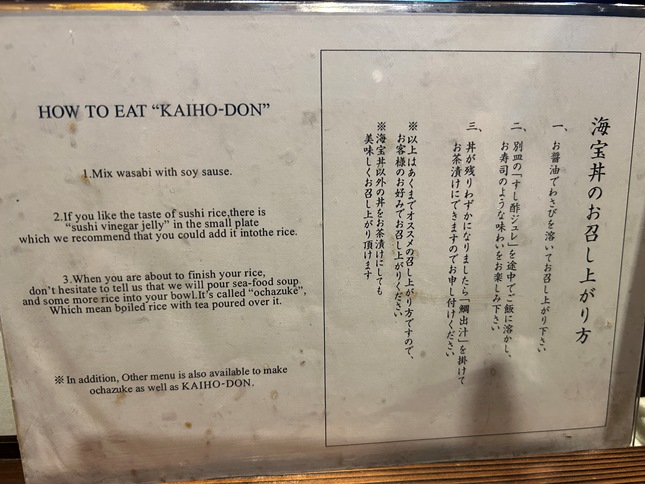 HOW TO EAT “KAIHO-DON”
1.Mix wasabi with soy sause.
2.If you like the taste of sushi rice,there is
“sushi vinegar jelly” in the small plate
which we recommend that you could add it intothe rice.
3.When you are about to finish your rice,
don't hesitate to tell us that we will pour sea-food soup
and some more rice into your bowl.It's called “ochazuke”,
Which mean boiled rice with tea poured over it.
※ In addition, Other menu is also available to make
ochazuke as well as KAIHO-DON.
海宝丼のお召し上がり方
一、お醤油でわさびを溶いてお召し上がり下さい
二、別皿の「すし酢ジュレ」を途中でご飯に溶かし、
お寿司のような味わいをお楽しみ下さい
三、丼が残りわずかになりましたら「鯛出汁」を掛けて
お茶漬けにできますのでお申し付けください
※以上はあくまでオススメの召し上がり方ですので、
お客様のお好みでお召し上がりください
※海宝丼以外の丼をお茶漬けにしても
美味しくお召し上がり頂けます